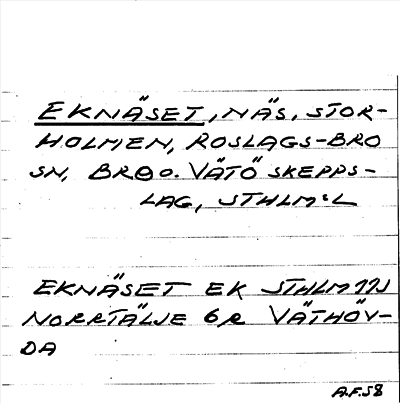 EKNÄSET, NÄS, STOR-
HOLMEN, ROSLAGS-BRO
SN, BRO O. VÄTÖ SKEPPS-
LAG, STHLM:L
EKNÄSET EK STHLM 11J
NORRTÄLJE 6R VÄTHÖV-
DA
A.F.58